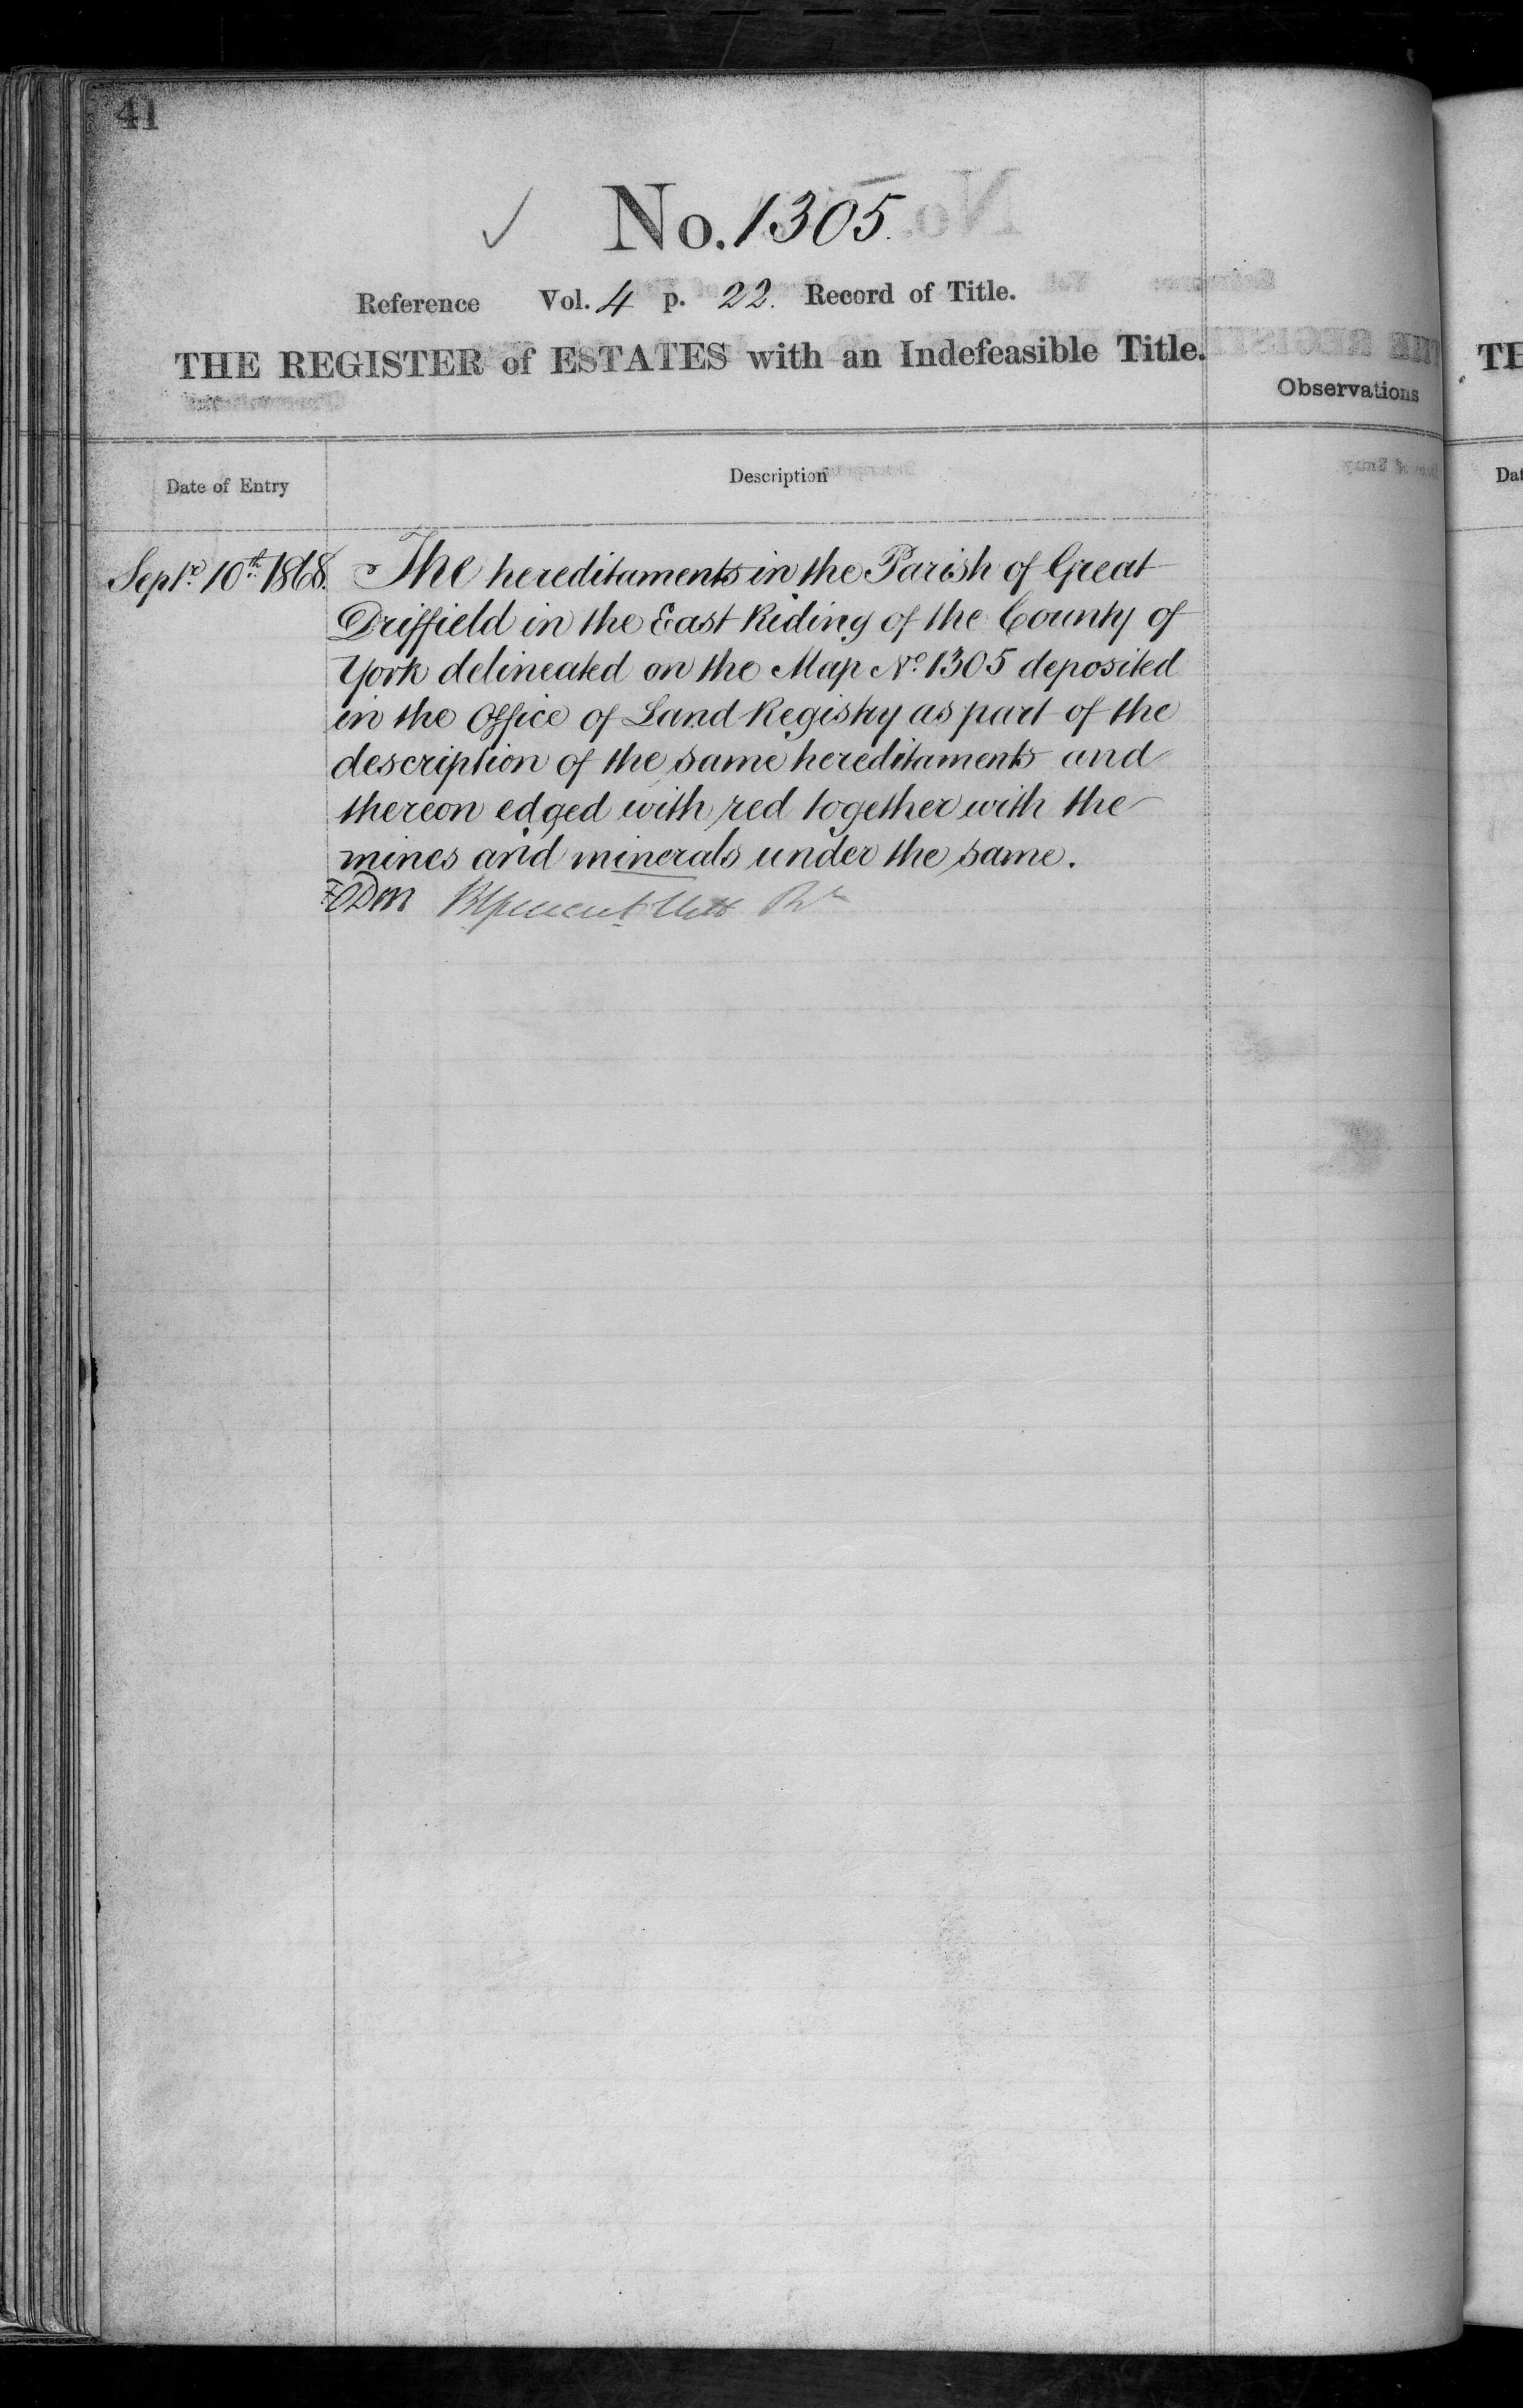 41
No. 1305.
Reference Vol. 4 p. 22. Record of Title.
THE REGISTER of ESTATES with an Indefeasible Title.
Observations
Date of Entry
Description
Septr. 10th. 1868. The hereditaments in the Parish of Great
Driffield in the East Riding of the County of
York delineated on the Map No. 1305 deposited
in the Office of Land Registry as part of the
description of the same hereditaments and
thereon edged with red together with the
mines and minerals under the same.